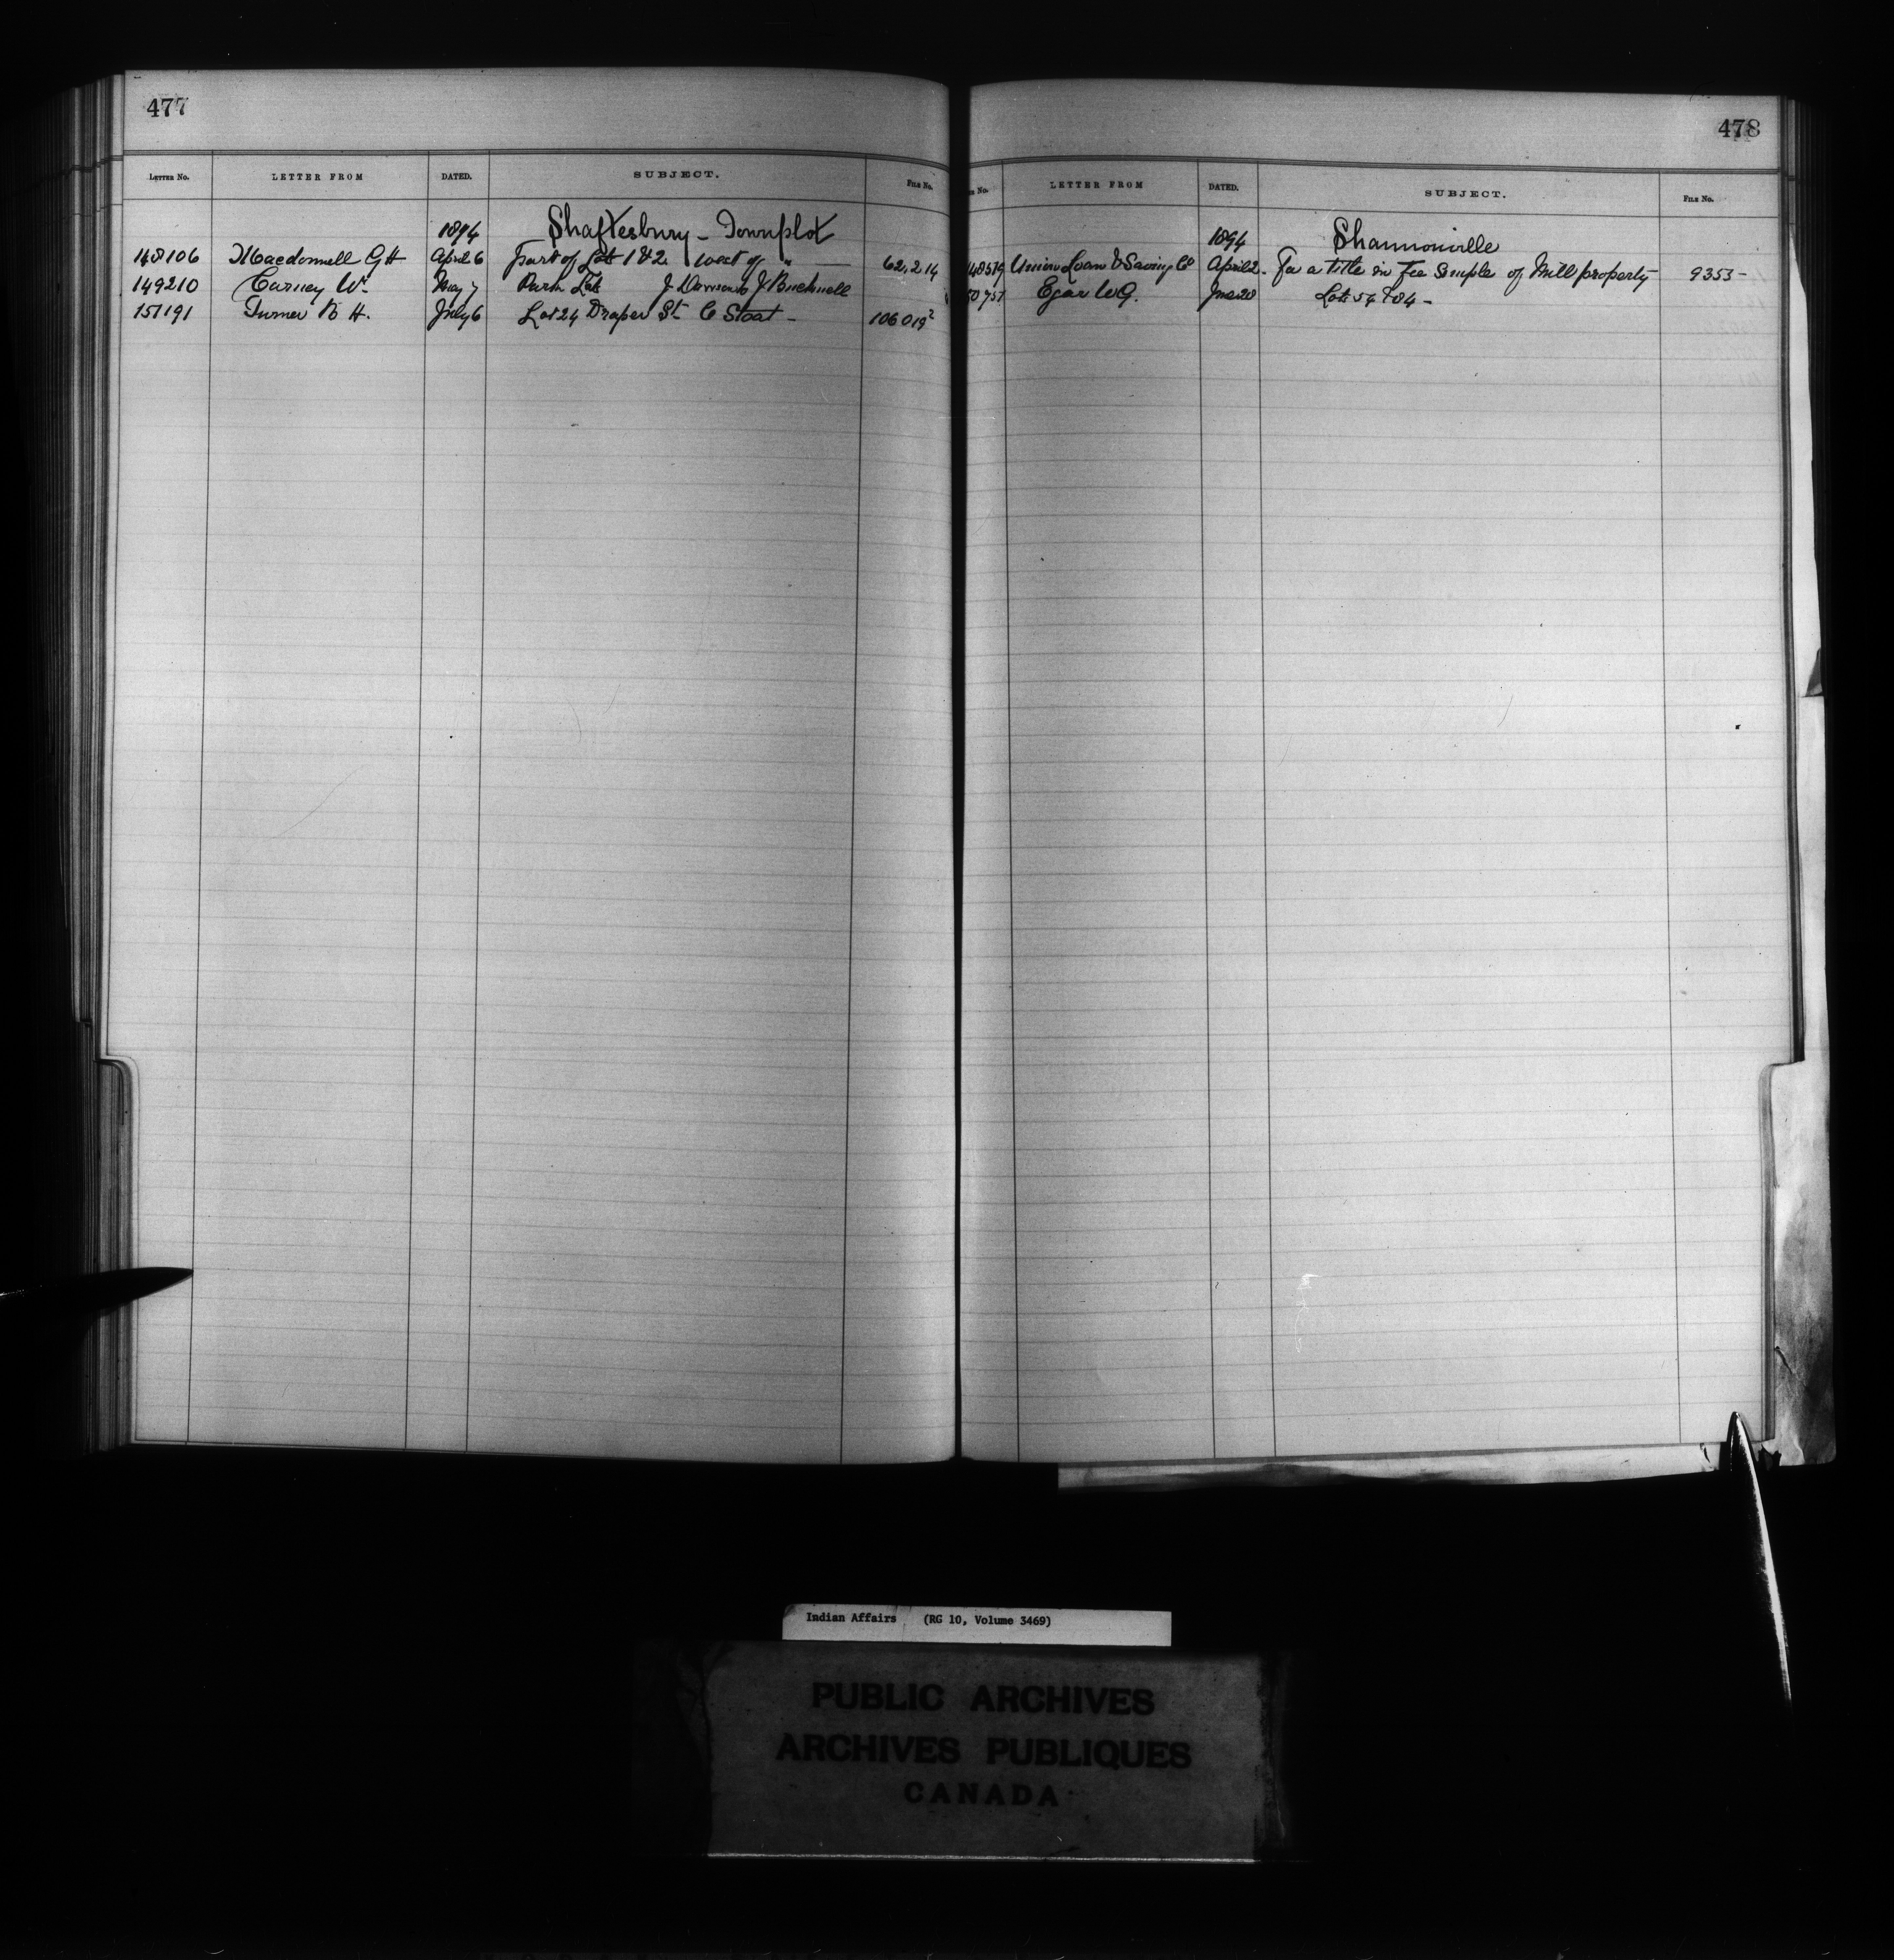 477
LETTER NO. LETTER FROM DATED. SUBJECT. FILE No.
1894 Shaftesbury - Townplot
148106 Macdonnell GH April 6 Part of Lots 1 & 2 West of " 62,214
149210 Carney Wm May 7 Park Lots J Dawson & J Bucknell
151191 Turner B H. July 6 Lot 24 Draper St C Stoat - 106019²
478
No. LETTER FROM DATED. SUBJECT. FILE No.
1894 Shannonville
148579 Union Loan & Saving Co April 2 - For a title in Fee Simple of Mill property 9353 -
50757 Egar W.G. June 20 Lots 54 & 84 -
Indian Affairs (RG 10, Volume 3469)
PUBLIC ARCHIVES
ARCHIVES PUBLIQUES
CANADA